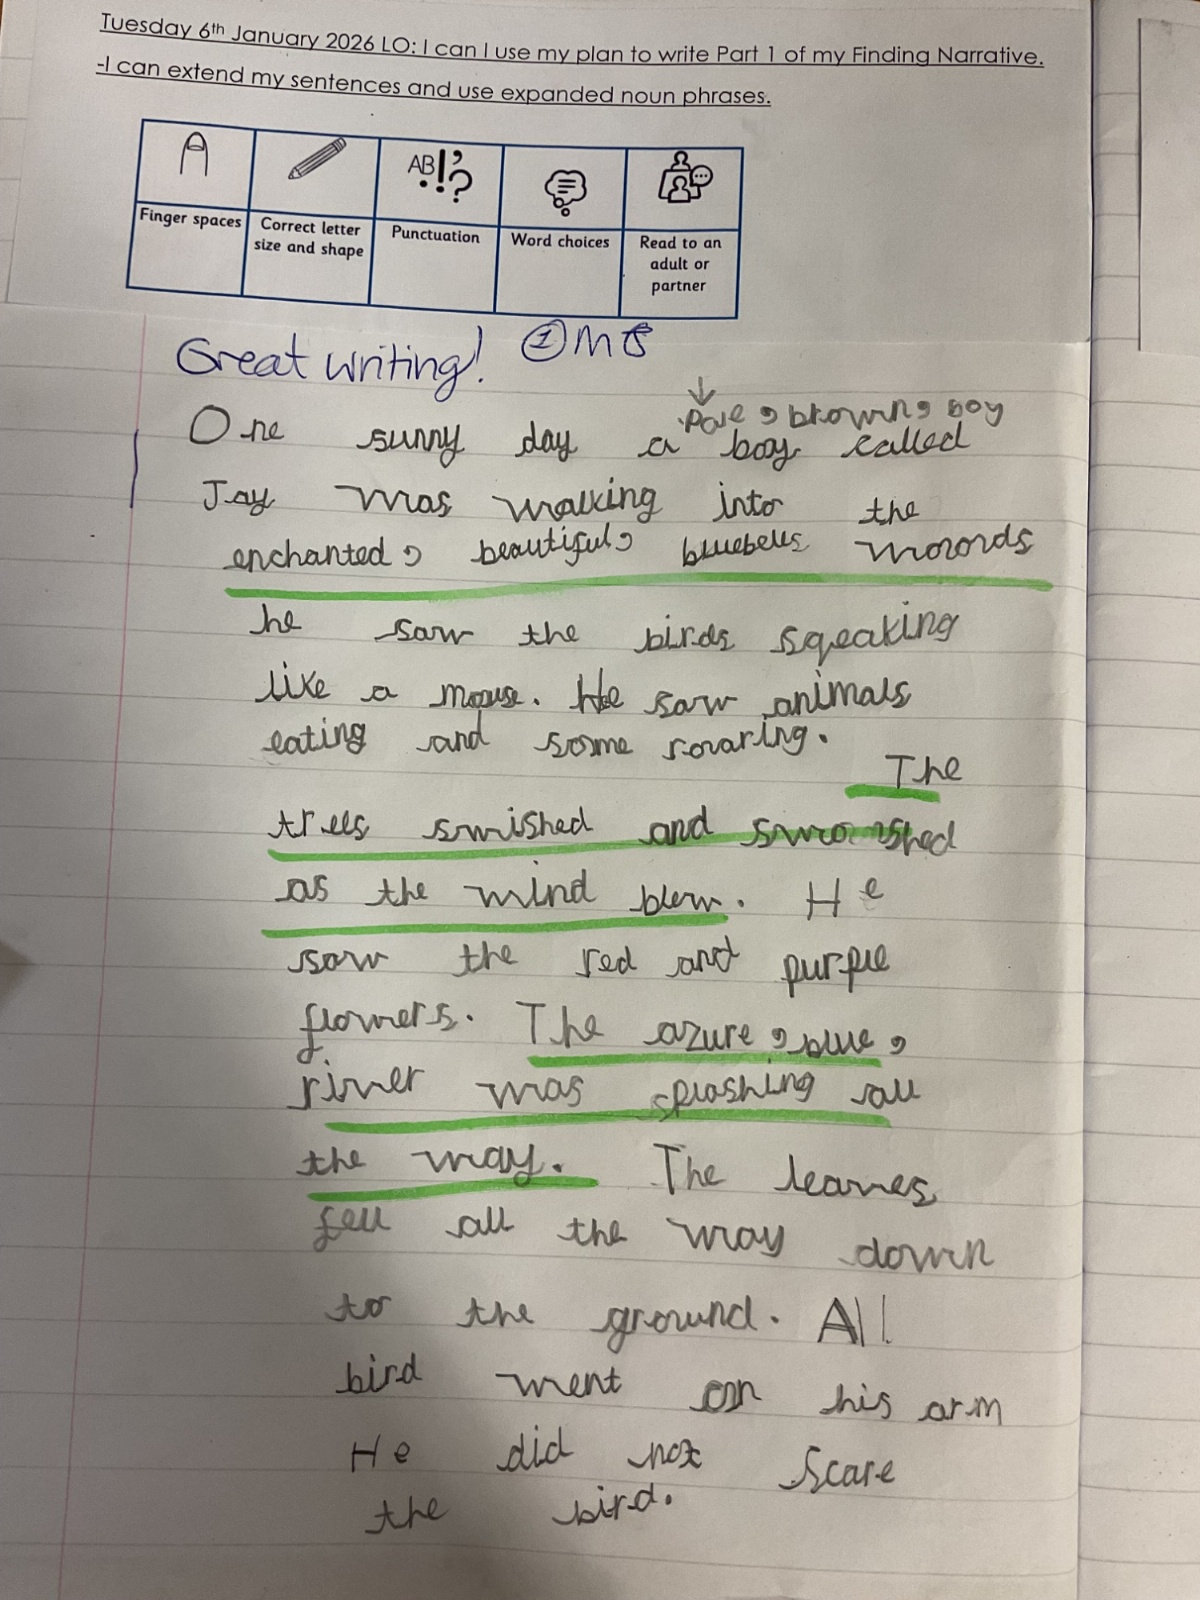 Tuesday 6th January 2026 LO: I can I use my plan to write Part 1 of my Finding Narrative.
-I can extend my sentences and use expanded noun phrases.
AB!?
Finger spaces
Correct letter size and shape
Punctuation
Word choices
Read to an adult or partner
Great writing!
brown, boy
One sunny day a boy called
Jay was walking into the
enchanted, beautiful, bluebells woords
he saw the birds sqeaking
like a mouse. He saw animals
eating and some roraring.
The
trees swished and swooshed
as the wind blew. He
saw the red and purple
flowers. The azure, blue,
river was splashing all
the way. The leaves
fell all the way down
to the ground. All
bird went on his arm
He did not scare
the bird.